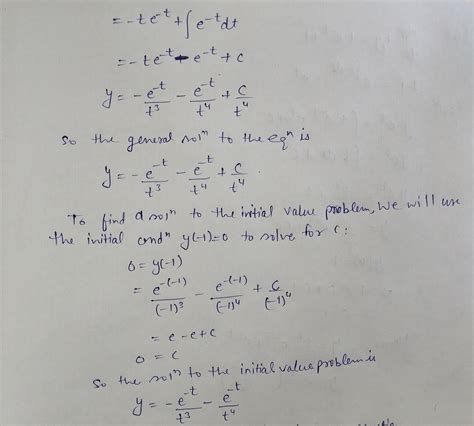 = -te^-t + ∫e^-t dt
= -te^-t - e^-t + c
y = -e^-t/t^3 - e^-t/t^4 + c/t^4
So the general sol^n to the eq^n is
y = -e^-t/t^3 - e^-t/t^4 + c/t^4.
To find a sol^n to the initial value problem, We will use
the initial cond^n y(-1)=0 to solve for c:
0 = y(-1)
= e^-(-1)/(-1)^3 - e^-(-1)/(-1)^4 + c/(-1)^4
= e - e + c
0 = c
So the sol^n to the initial value problem is
y = -e^-t/t^3 - e^-t/t^4